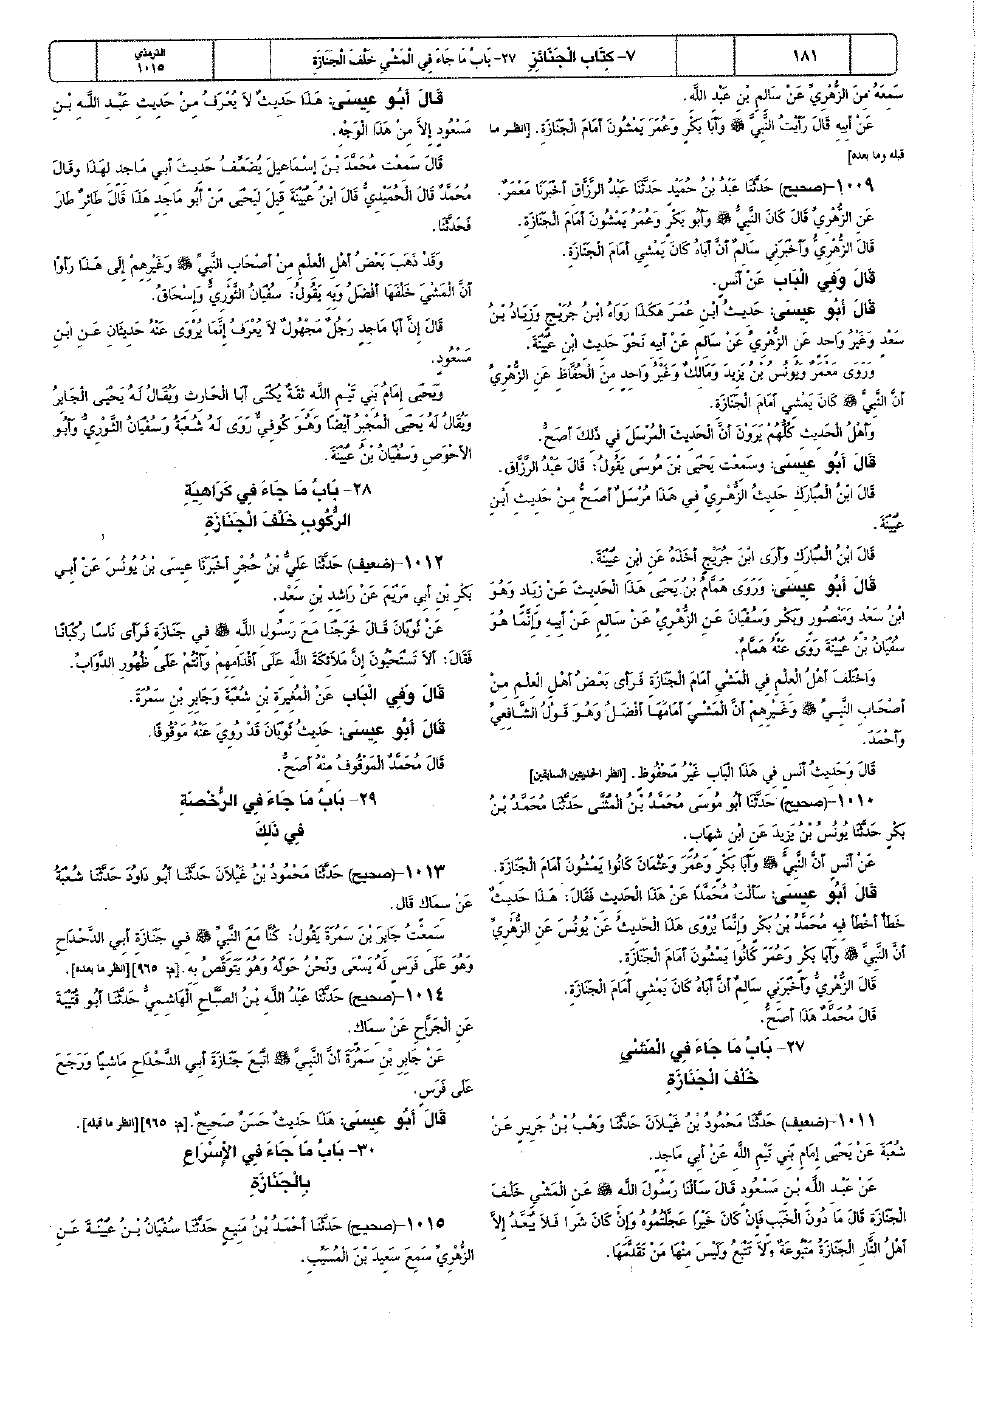 ١٨١
٧- كتاب الجنائز ٢٧- باب ما جاء في المشي خلف الجنازة
الترمذي
١٠١٥
سَمِعَهُ مِنَ الزُّهْرِيِّ عَنْ سَالِمِ بْنِ عَبْدِ اللَّهِ.
عَنْ أَبِيهِ قَالَ رَأَيْتُ النَّبِيَّ ﷺ وَأَبَا بَكْرٍ وَعُمَرَ يَمْشُونَ أَمَامَ الْجَنَازَةِ. [انظر ما
قبله وما بعده]
١٠٠٩-(صحيح) حَدَّثَنَا عَبْدُ بْنُ حُمَيْدٍ حَدَّثَنَا عَبْدُ الرَّزَّاقِ أَخْبَرَنَا مَعْمَرٌ.
عَنِ الزُّهْرِيِّ قَالَ كَانَ النَّبِيُّ ﷺ وَأَبُو بَكْرٍ وَعُمَرُ يَمْشُونَ أَمَامَ الْجَنَازَةِ.
قَالَ الزُّهْرِيُّ وَأَخْبَرَنِي سَالِمٌ أَنَّ أَبَاهُ كَانَ يَمْشِي أَمَامَ الْجَنَازَةِ.
قَالَ وَفِي الْبَاب عَنْ أَنَسٍ.
قَالَ أَبُو عِيسَى: حَدِيثُ ابْنِ عُمَرَ هَكَذَا رَوَاهُ ابْنُ جُرَيْجٍ وَزِيَادُ بْنُ
سَعْدٍ وَغَيْرُ وَاحِدٍ عَنِ الزُّهْرِيِّ عَنْ سَالِمٍ عَنْ أَبِيهِ نَحْوَ حَدِيثِ ابْنِ عُيَيْنَةَ.
وَرَوَى مَعْمَرٌ وَيُونُسُ بْنُ يَزِيدَ وَمَالِكٌ وَغَيْرُ وَاحِدٍ مِنَ الْحُفَّاظِ عَنِ الزُّهْرِيِّ
أَنَّ النَّبِيَّ ﷺ كَانَ يَمْشِي أَمَامَ الْجَنَازَةِ.
وَأَهْلُ الْحَدِيثِ كُلُّهُمْ يَرَوْنَ أَنَّ الْحَدِيثَ الْمُرْسَلَ فِي ذَلِكَ أَصَحُّ.
قَالَ أَبُو عِيسَى: وسَمِعْت يَحْيَى بْنَ مُوسَى يَقُولُ: قَالَ عَبْدُ الرَّزَّاقِ.
قَالَ ابْنُ الْمُبَارَكِ حَدِيثُ الزُّهْرِيِّ فِي هَذَا مُرْسَلٌ أَصَحُّ مِنْ حَدِيثِ ابْنِ
عُيَيْنَةَ.
قَالَ ابْنُ الْمُبَارَكِ وَأَرَى ابْنَ جُرَيْجٍ أَخَذَهُ عَنِ ابْنِ عُيَيْنَةَ.
قَالَ أَبُو عِيسَى: وَرَوَى هَمَّامُ بْنُ يَحْيَى هَذَا الْحَدِيثَ عَنْ زِيَادٍ وَهُوَ
ابْنُ سَعْدٍ وَمَنْصُورٍ وَبَكْرٍ وَسُفْيَانَ عَنِ الزُّهْرِيِّ عَنْ سَالِمٍ عَنْ أَبِيهِ وَإِنَّمَا هُوَ
سُفْيَانُ بْنُ عُيَيْنَةَ رَوَى عَنْهُ هَمَّامٌ.
وَاخْتَلَفَ أَهْلُ الْعِلْمِ فِي الْمَشْيِ أَمَامَ الْجَنَازَةِ فَرَأَى بَعْضُ أَهْلِ الْعِلْمِ مِنْ
أَصْحَابِ النَّبِيِّ ﷺ وَغَيْرِهِمْ أَنَّ الْمَشْيَ أَمَامَهَا أَفْضَلُ وَهُوَ قَوْلُ الشَّافِعِيِّ
وَأَحْمَدَ.
قَالَ وَحَدِيثُ أَنَسٍ فِي هَذَا الْبَابِ غَيْرُ مَحْفُوظٍ. [انظر الحديثين السابقين]
١٠١٠-(صحيح) حَدَّثَنَا أَبُو مُوسَى مُحَمَّدُ بْنُ الْمُثَنَّى حَدَّثَنَا مُحَمَّدُ بْنُ
بَكْرٍ حَدَّثَنَا يُونُسُ بْنُ يَزِيدَ عَنِ ابْنِ شِهَابٍ.
عَنْ أَنَسٍ أَنَّ النَّبِيَّ ﷺ وَأَبَا بَكْرٍ وَعُمَرَ وَعُثْمَانَ كَانُوا يَمْشُونَ أَمَامَ الْجَنَازَةِ.
قَالَ أَبُو عِيسَى: سَأَلْتُ مُحَمَّدًا عَنْ هَذَا الْحَدِيثِ فَقَالَ: هَذَا حَدِيثٌ
خَطَأٌ أَخْطَأَ فِيهِ مُحَمَّدُ بْنُ بَكْرٍ وَإِنَّمَا يُرْوَى هَذَا الْحَدِيثُ عَنْ يُونُسَ عَنِ الزُّهْرِيِّ
أَنَّ النَّبِيَّ ﷺ وَأَبَا بَكْرٍ وَعُمَرَ كَانُوا يَمْشُونَ أَمَامَ الْجَنَازَةِ.
قَالَ الزُّهْرِيُّ وَأَخْبَرَنِي سَالِمٌ أَنَّ أَبَاهُ كَانَ يَمْشِي أَمَامَ الْجَنَازَةِ.
قَالَ مُحَمَّدٌ هَذَا أَصَحُّ.
٢٧- بَابُ مَا جَاءَ فِي الْمَشْيِ
خَلْفَ الْجَنَازَةِ
١٠١١-(ضعيف) حَدَّثَنَا مَحْمُودُ بْنُ غَيْلاَنَ حَدَّثَنَا وَهْبُ بْنُ جَرِيرٍ عَنْ
شُعْبَةَ عَنْ يَحْيَى إِمَامِ بَنِي تَيْمِ اللَّهِ عَنْ أَبِي مَاجِدٍ.
عَنْ عَبْدِ اللَّهِ بْنِ مَسْعُودٍ قَالَ سَأَلْنَا رَسُولَ اللَّهِ ﷺ عَنِ الْمَشْيِ خَلْفَ
الْجَنَازَةِ قَالَ مَا دُونَ الْخَبَبِ فَإِنْ كَانَ خَيْرًا عَجَّلْتُمُوهُ وَإِنْ كَانَ شَرًا فَلاَ يُبَعَّدُ إِلاَّ
أَهْلُ النَّارِ الْجَنَازَةُ مَتْبُوعَةٌ وَلاَ تَتْبَعُ وَلَيْسَ مِنْهَا مَنْ تَقَدَّمَهَا.
قَالَ أَبُو عِيسَى: هَذَا حَدِيثٌ لاَ يُعْرَفُ مِنْ حَدِيثِ عَبْدِ اللَّهِ بْنِ
مَسْعُودٍ إِلاَّ مِنْ هَذَا الْوَجْهِ.
قَالَ سَمِعْت مُحَمَّدَ بْنَ إِسْمَاعِيلَ يُضَعِّفُ حَدِيثَ أَبِي مَاجِدٍ لِهَذَا وقَالَ
مُحَمَّدٌ قَالَ الْحُمَيْدِيُّ قَالَ ابْنُ عُيَيْنَةَ قِيلَ لِيَحْيَى مَنْ أَبُو مَاجِدٍ هَذَا قَالَ طَائِرٌ طَارَ
فَحَدَّثَنَا.
وَقَدْ ذَهَبَ بَعْضُ أَهْلِ الْعِلْمِ مِنْ أَصْحَابِ النَّبِيِّ ﷺ وَغَيْرِهِمْ إِلَى هَذَا رَأَوْا
أَنَّ الْمَشْيَ خَلْفَهَا أَفْضَلُ وَبِهِ يَقُولُ: سُفْيَانُ الثَّوْرِيُّ وَإِسْحَاقُ.
قَالَ إِنَّ أَبَا مَاجِدٍ رَجُلٌ مَجْهُولٌ لاَ يُعْرَفُ إِنَّمَا يُرْوَى عَنْهُ حَدِيثَانِ عَنِ ابْنِ
مَسْعُودٍ.
وَيَحْيَى إِمَامُ بَنِي تَيْمِ اللَّهِ ثِقَةٌ يُكْنَى أَبَا الْحَارِثِ وَيُقَالُ لَهُ يَحْيَى الْجَابِرُ
وَيُقَالُ لَهُ يَحْيَى الْمُجْبِرُ أَيْضًا وَهُوَ كُوفِيٌّ رَوَى لَهُ شُعْبَةُ وَسُفْيَانُ الثَّوْرِيُّ وَأَبُو
الأَحْوَصِ وَسُفْيَانُ بْنُ عُيَيْنَةَ.
٢٨- بَابُ مَا جَاءَ فِي كَرَاهِيَةِ
الرُّكُوبِ خَلْفَ الْجَنَازَةِ
١٠١٢-(ضعيف) حَدَّثَنَا عَلِيُّ بْنُ حُجْرٍ أَخْبَرَنَا عِيسَى بْنُ يُونُسَ عَنْ أَبِي
بَكْرِ بْنِ أَبِي مَرْيَمَ عَنْ رَاشِدِ بْنِ سَعْدٍ.
عَنْ ثَوْبَانَ قَالَ خَرَجْنَا مَعَ رَسُولِ اللَّهِ ﷺ فِي جَنَازَةٍ فَرَأَى نَاسًا رُكْبَانًا
فَقَالَ: أَلاَ تَسْتَحْيُونَ إِنَّ مَلاَئِكَةَ اللَّهِ عَلَى أَقْدَامِهِمْ وَأَنْتُمْ عَلَى ظُهُورِ الدَّوَابِّ.
قَالَ وَفِي الْبَاب عَنْ الْمُغِيرَةِ بْنِ شُعْبَةَ وَجَابِرِ بْنِ سَمُرَةَ.
قَالَ أَبُو عِيسَى: حَدِيثُ ثَوْبَانَ قَدْ رُوِيَ عَنْهُ مَوْقُوفًا.
قَالَ مُحَمَّدٌ الْمَوْقُوفُ مِنْهُ أَصَحُّ.
٢٩- بَابُ مَا جَاءَ فِي الرُّخْصَةِ
فِي ذَلِكَ
١٠١٣-(صحيح) حَدَّثَنَا مَحْمُودُ بْنُ غَيْلاَنَ حَدَّثَنَا أَبُو دَاوُدَ حَدَّثَنَا شُعْبَةُ
عَنْ سِمَاكٍ قَالَ.
سَمِعْتُ جَابِرَ بْنَ سَمُرَةَ يَقُولُ: كُنَّا مَعَ النَّبِيِّ ﷺ فِي جَنَازَةِ أَبِي الدَّحْدَاحِ
وَهُوَ عَلَى فَرَسٍ لَهُ يَسْعَى وَنَحْنُ حَوْلَهُ وَهُوَ يَتَوَقَّصُ بِهِ. [م: ٩٦٥][انظر ما بعده].
١٠١٤-(صحيح) حَدَّثَنَا عَبْدُ اللَّهِ بْنُ الصَّبَّاحِ الْهَاشِمِيُّ حَدَّثَنَا أَبُو قُتَيْبَةَ
عَنِ الْجَرَّاحِ عَنْ سِمَاكٍ.
عَنْ جَابِرِ بْنِ سَمُرَةَ أَنَّ النَّبِيَّ ﷺ اتَّبَعَ جَنَازَةَ أَبِي الدَّحْدَاحِ مَاشِيًا وَرَجَعَ
عَلَى فَرَسٍ.
قَالَ أَبُو عِيسَى: هَذَا حَدِيثٌ حَسَنٌ صَحِيحٌ. [م: ٩٦٥][انظر ما قبله].
٣٠- بَابُ مَا جَاءَ فِي الإِسْرَاعِ
بِالْجَنَازَةِ
١٠١٥-(صحيح) حَدَّثَنَا أَحْمَدُ بْنُ مَنِيعٍ حَدَّثَنَا سُفْيَانُ بْنُ عُيَيْنَةَ عَنِ
الزُّهْرِيِّ سَمِعَ سَعِيدَ بْنَ الْمُسَيِّبِ.